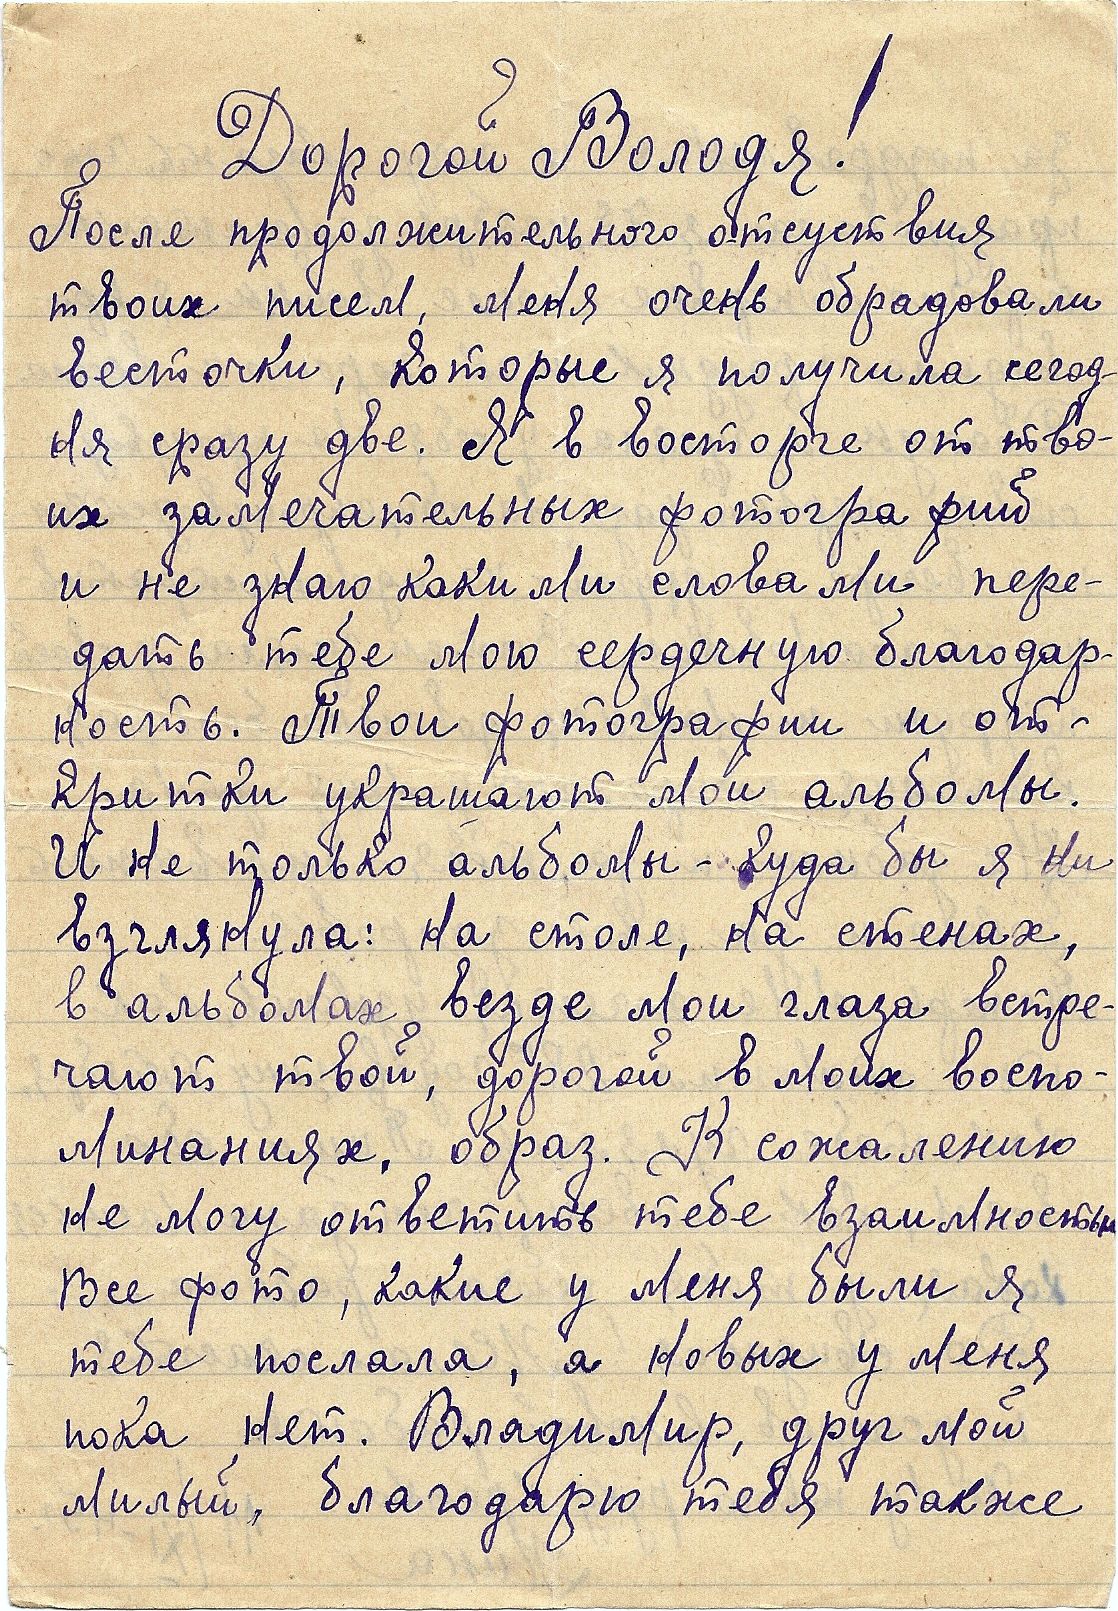 Дорогой Володя!
После продолжительного отсуствия
твоих писем, меня очень обрадовали
весточки, которые я получила сегод-
ня сразу две. Я в восторге от тво-
их замечательных фотографий
и не знаю какими словами пере-
дать тебе мою сердечную благодар-
ность. Твои фотографии и от-
критки украшают мои альбомы.
И не только альбомы - куда бы я ни
взглянула: на столе, на стенах,
в альбомах везде мои глаза встре-
чают твой, дорогой в моих воспо-
минаниях, образ. К сожалению
не могу ответить тебе взаимностью
Все фото, какие у меня были я
тебе послала, а новых у меня
пока нет. Владимир, друг мой
милый, благодарю тебя также